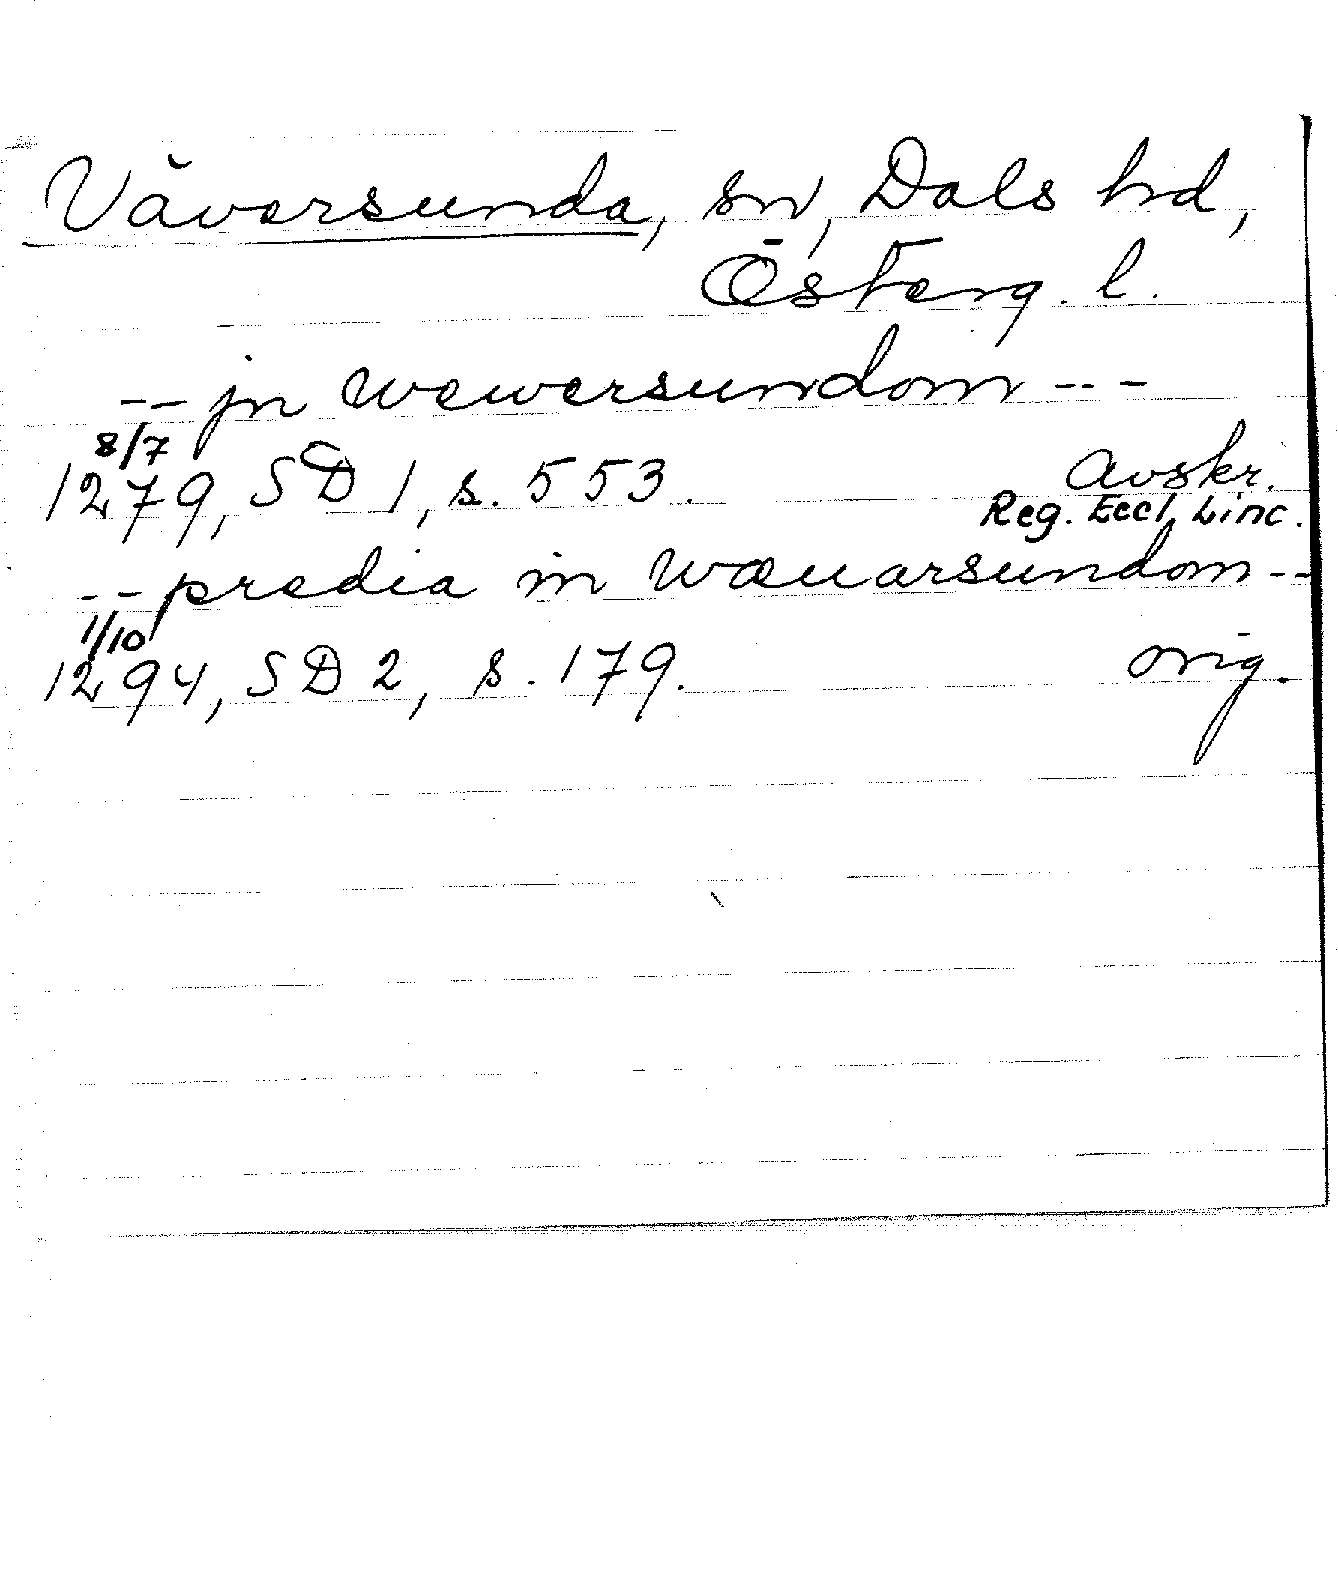 Väversunda, sn, Dals hd,
Österg. l.
-- jn wewersundom ---
8/7
1279, SD 1, s. 553. Avskr.
Reg. Eccl. Linc.
-- predia in wæuarsundom --
1/10
1294, SD 2, s. 179. orig.